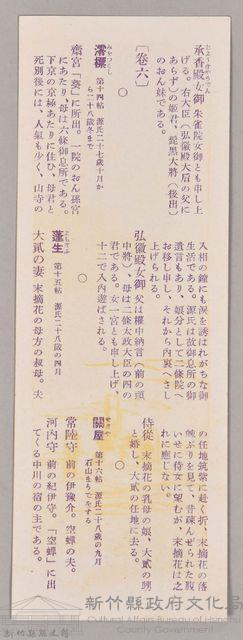 承香殿女御 朱雀院女御とも申し上
げる。右大臣(弘徽殿大后の父に
あらず)の姫君、髭黒大将(後出)
のおん妹である。
〔卷六〕
○
澪標 第十四帖 源氏二十七歲十月か
ら二十八歲冬まで
齋宮 「葵」に所出。一院のおん孫宮
にあたり、母は六條御息所である。
下京の京極あたりに住ひ、母君と
死別後には、人氣も少く、山寺の
入相の鐘にも淚を誘はれがちな御
生活である。源氏は故御息所の御
遺言もあり、娘分として二條院へ
お移し申し、それから內裏へさし
上げられる。
弘徽殿女御 父は權中納言(前の頭
中將)、母は二條太政大臣の四の
君である。女一宮とも申し上げ、
十二で入內遊ばされる。
○
蓬生 第十五帖 源氏二十八歲の四月
大貳の妻 末摘花の母方の叔母。夫
の任地筑紫に赴く折、末摘花の落
魄ぶりを見て、昔疎んぜられた腹
いせに侍女に望むが、末摘花は之
れに應じない。
侍從 末摘花の乳母の娘、大貳の甥
と婚し、大貳の任地に去る。
○
關屋 第十六帖 源氏二十八歲の九月
石山まうでをする
常陸守 前の伊豫介。空蟬の夫。
河內守 前の紀伊守。「空蟬」に出
てくる中川の宿の主である。
新竹縣政府文化局
Cultural Affairs Bureau of Hsinchu County